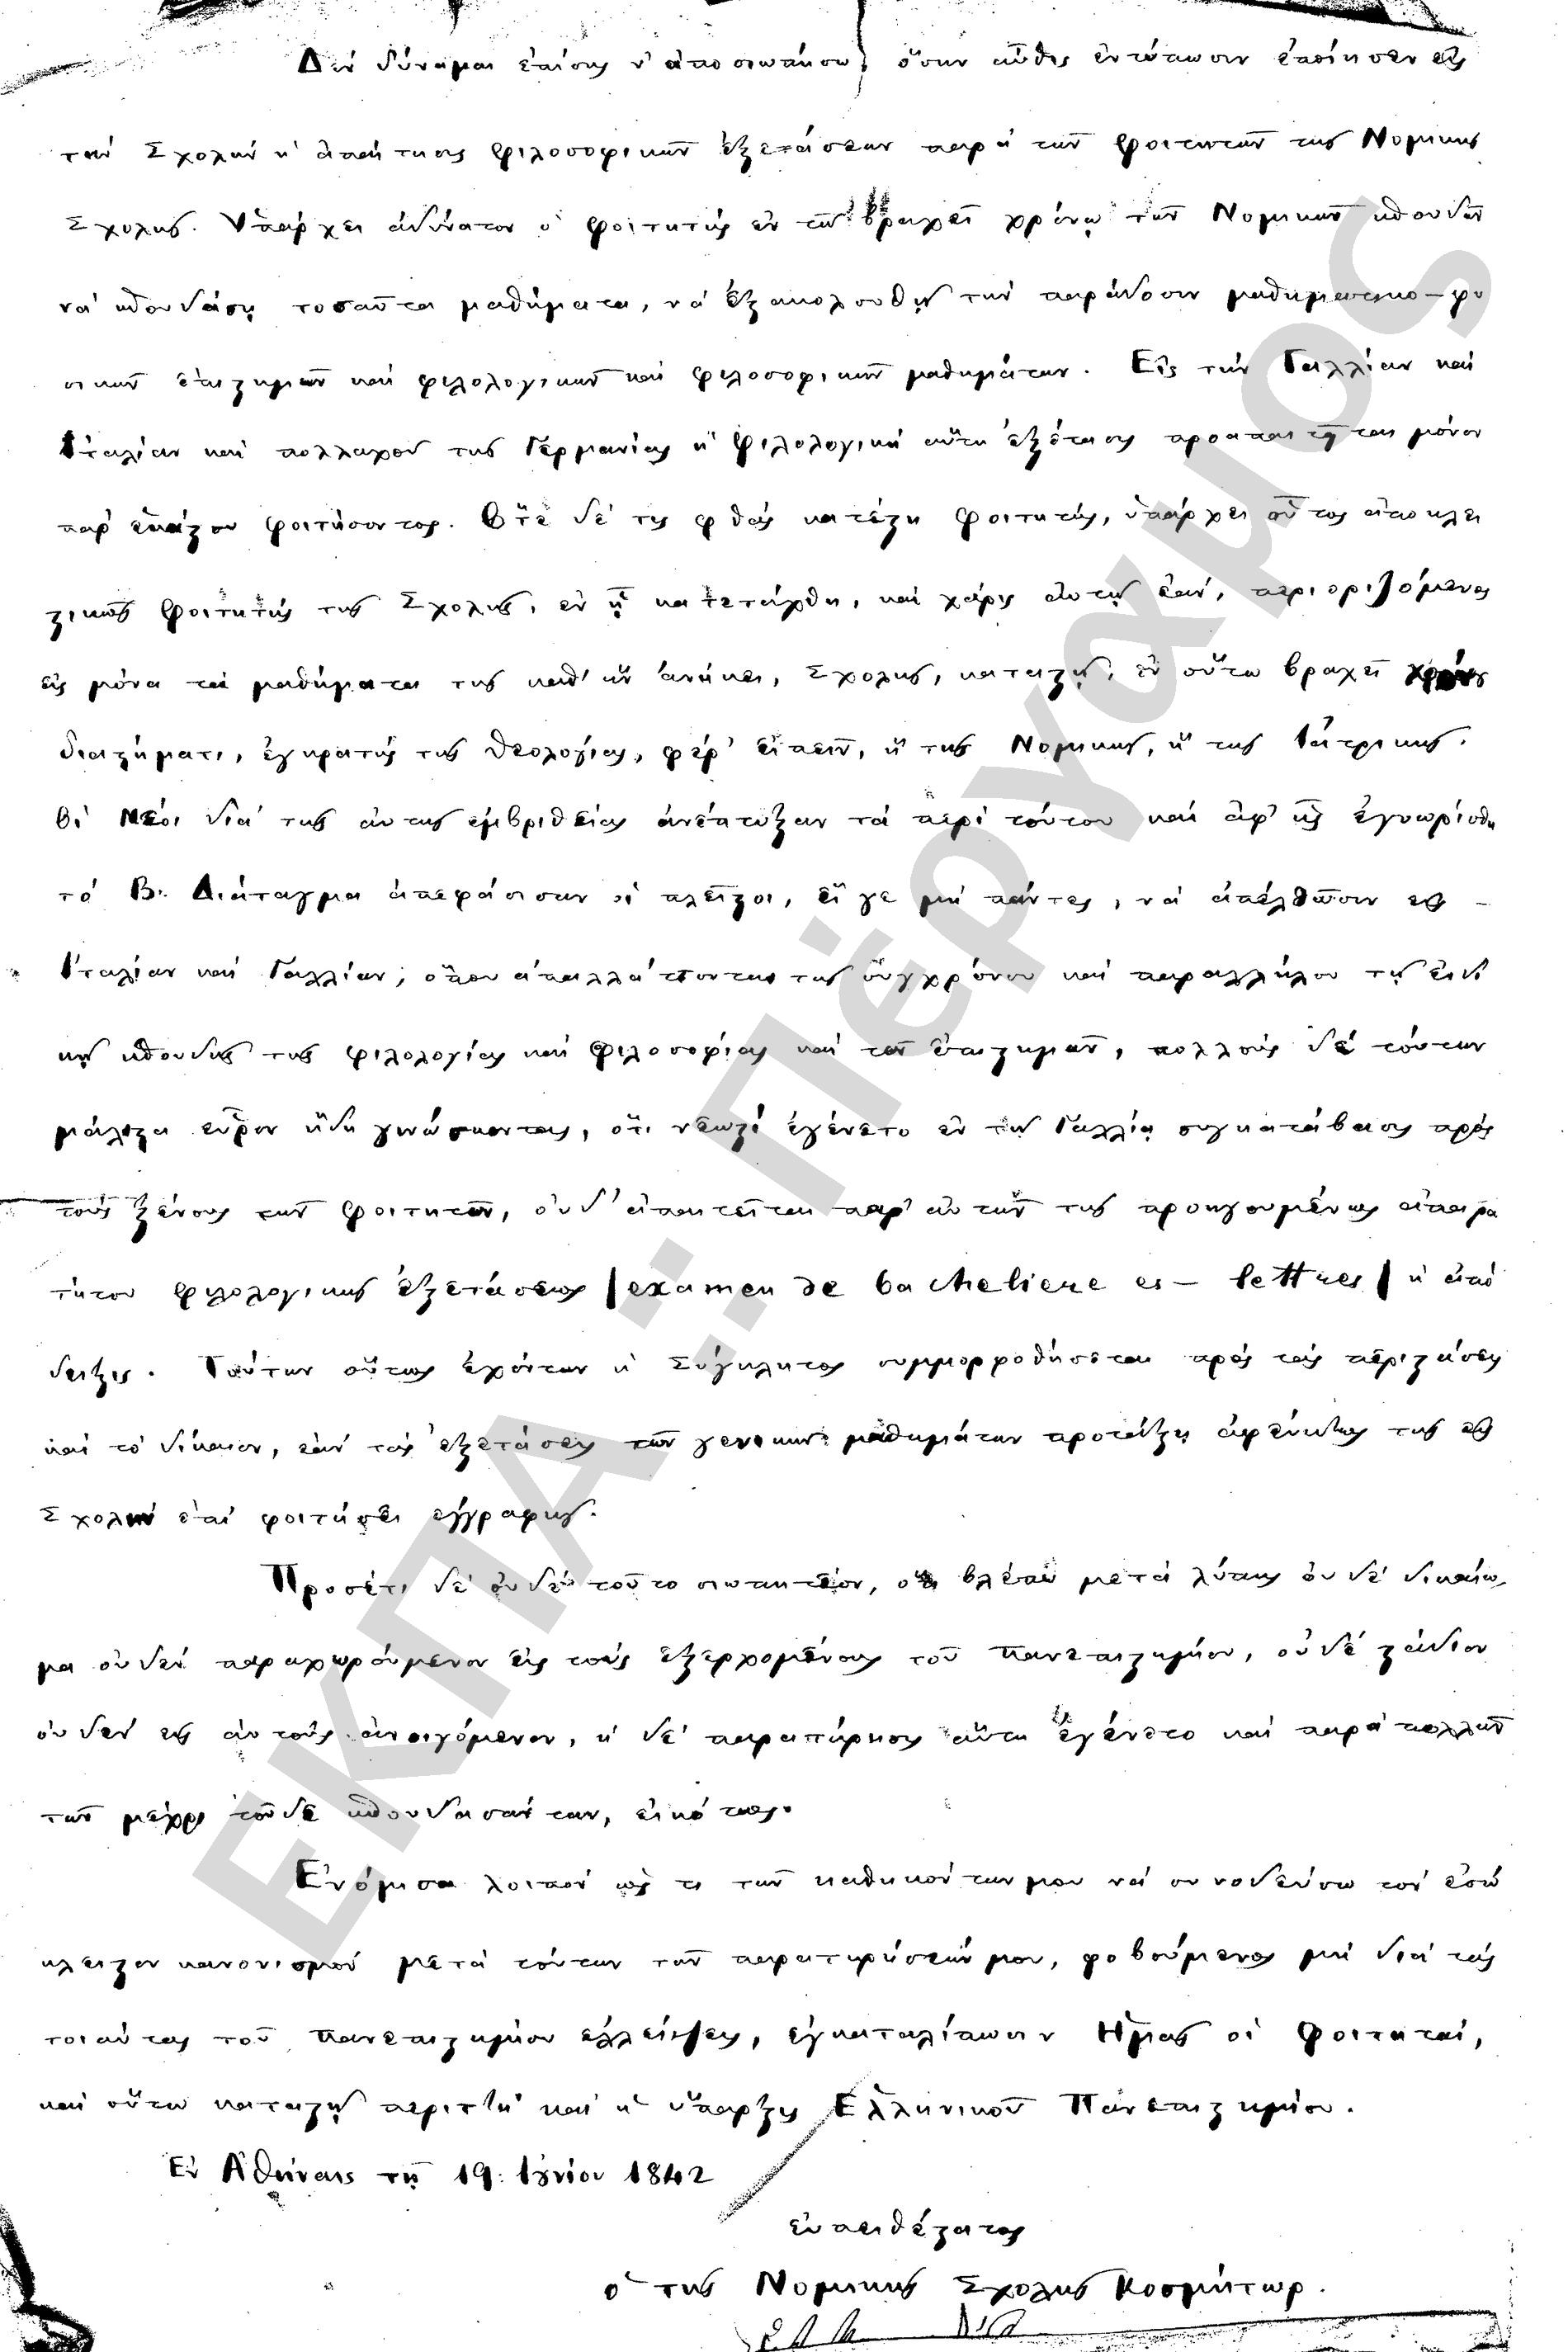 Δέν δύναμαι ἐπίσης ν' ἀποσιωπήσω, ὅσην αὖθις ἐντύπωσιν ἐποίησεν εἰς
τήν Σχολήν ἡ ἀπαίτησις φιλοσοφικῶν ἐξετάσεων παρά τῶν φοιτητῶν τῆς Νομικῆς
Σχολῆς. Ὑπάρχει ἀδύνατον ὁ φοιτητής ἐν τῷ βραχεῖ χρόνῳ τῶν Νομικῶν σπουδῶν
νά σπουδάσῃ τοσαῦτα μαθήματα, νά ἐξακολουθῇ τήν παράδοσιν μαθηματικο-φυ
σικῶν ἐπιστημῶν καί φιλολογικῶν καί φιλοσοφικῶν μαθημάτων. Εἰς τήν Γαλλίαν καί
Ἰταλίαν καί πολλαχοῦ τῆς Γερμανίας ἡ φιλολογική αὕτη ἐξέτασις προαπαιτῆται μόνον
παρ' ἑκάστου φοιτήσοντος. Ὅτε δέ τις φθάς καταστῇ φοιτητής, ὑπάρχει οὗτος ἀποκλει
στικῶς φοιτητής τῆς Σχολῆς, ἐν ᾗ κατετάχθη, καί χάρις αὐτῷ ἐάν, περιοριζόμενος
εἰς μόνα τά μαθήματα τῆς καθ' ἥν ἀνήκει, Σχολῆς, καταστῇ, ἐν οὕτω βραχεῖ
διαστήματι, ἐγκρατής τῆς θεολογίας, φέρ' εἰπεῖν, ἤ τῆς Νομικῆς, ἤ τῆς Ἰατρικῆς.
Οἱ Νέοι διά τῆς αὐτῆς ἐμβριθείας ἀνέπτυξαν τά περί τούτου καί ἀφ' ἧς ἐγνωρίσθη
τό Β. Διάταγμα ἀπεφάσισαν οἱ πλεῖστοι, εἴ γε μή πάντες, νά ἀπέλθωσιν εἰς
Ἰταλίαν καί Γαλλίαν, ὅπου ἀπαλλάττονται τῆς συγχρόνου καί παραλλήλου τῇ εἰδι
κῇ σπουδῆς τῆς φιλολογίας καί φιλοσοφίας καί τῶν ἐπιστημῶν, πολλούς δέ τούτων
μάλιστα εὗρον ἤδη γινώσκοντας, ὅτι νεωστί ἐγένετο ἐν τῇ Γαλλίᾳ συγκατάβασις πρός
τούς ξένους τῶν φοιτητῶν, οὐδ' ἀπαιτεῖται παρ' αὐτῶν τῆς προηγουμένως ἀπαιρα
τήτου φιλολογικῆς ἐξετάσεως (examen de bacheliere es-lettres) ἡ ἀπό
δειξις. Τούτων οὕτως ἐχόντων ἡ Σύγκλητος συμμορφοθήσεται πρός τάς περιστάσεις
καί τό δίκαιον, ἐάν τάς ἐξετάσεις τῶν γενικῶν μαθημάτων προτάξῃ ἀφεύκτως τῆς εἰς
Σχολήν ἐπί φοιτήσει ἐγγραφῆς.
Προσέτι δέ οὐδέ τοῦτο σιωπητέον, ὅτι βλέπω μετά λύπης οὐδέ δικαίω
μα οὐδέν παραχωρούμενον εἰς τούς ἐξερχομένους τοῦ Πανεπιστημίου, οὐδέ στάδιον
οὐδέν εἰς αὐτούς ἀνοιγόμενον, ἡ δέ παρατήρησις αὕτη ἐγένετο καί παρά πολλῶν
τῶν μέχρι τοῦδε σπουδασάντων, εἰκότως.
Ἐνόμισα λοιπόν ὡς τι τῶν καθηκόντων μου νά συνοδεύσω τόν ἐσώ
κλειστον κανονισμόν μετά τούτων τῶν παρατηρήσεών μου, φοβούμενος μή διά τάς
τοιαύτας τοῦ Πανεπιστημίου ἐλλείψεις, ἐγκαταλίπωσιν Ἡμᾶς οἱ Φοιτηταί,
καί οὕτω καταστῇ περιττή καί ἡ ὕπαρξις Ἑλληνικοῦ Πανεπιστημίου.
Ἐν Ἀθήναις τῇ 19: Ἰουνίου 1842
εὐπειθέστατος
ὁ τῆς Νομικῆς Σχολῆς Κοσμήτωρ.
ΕΚΠΑ: Πέργαμος